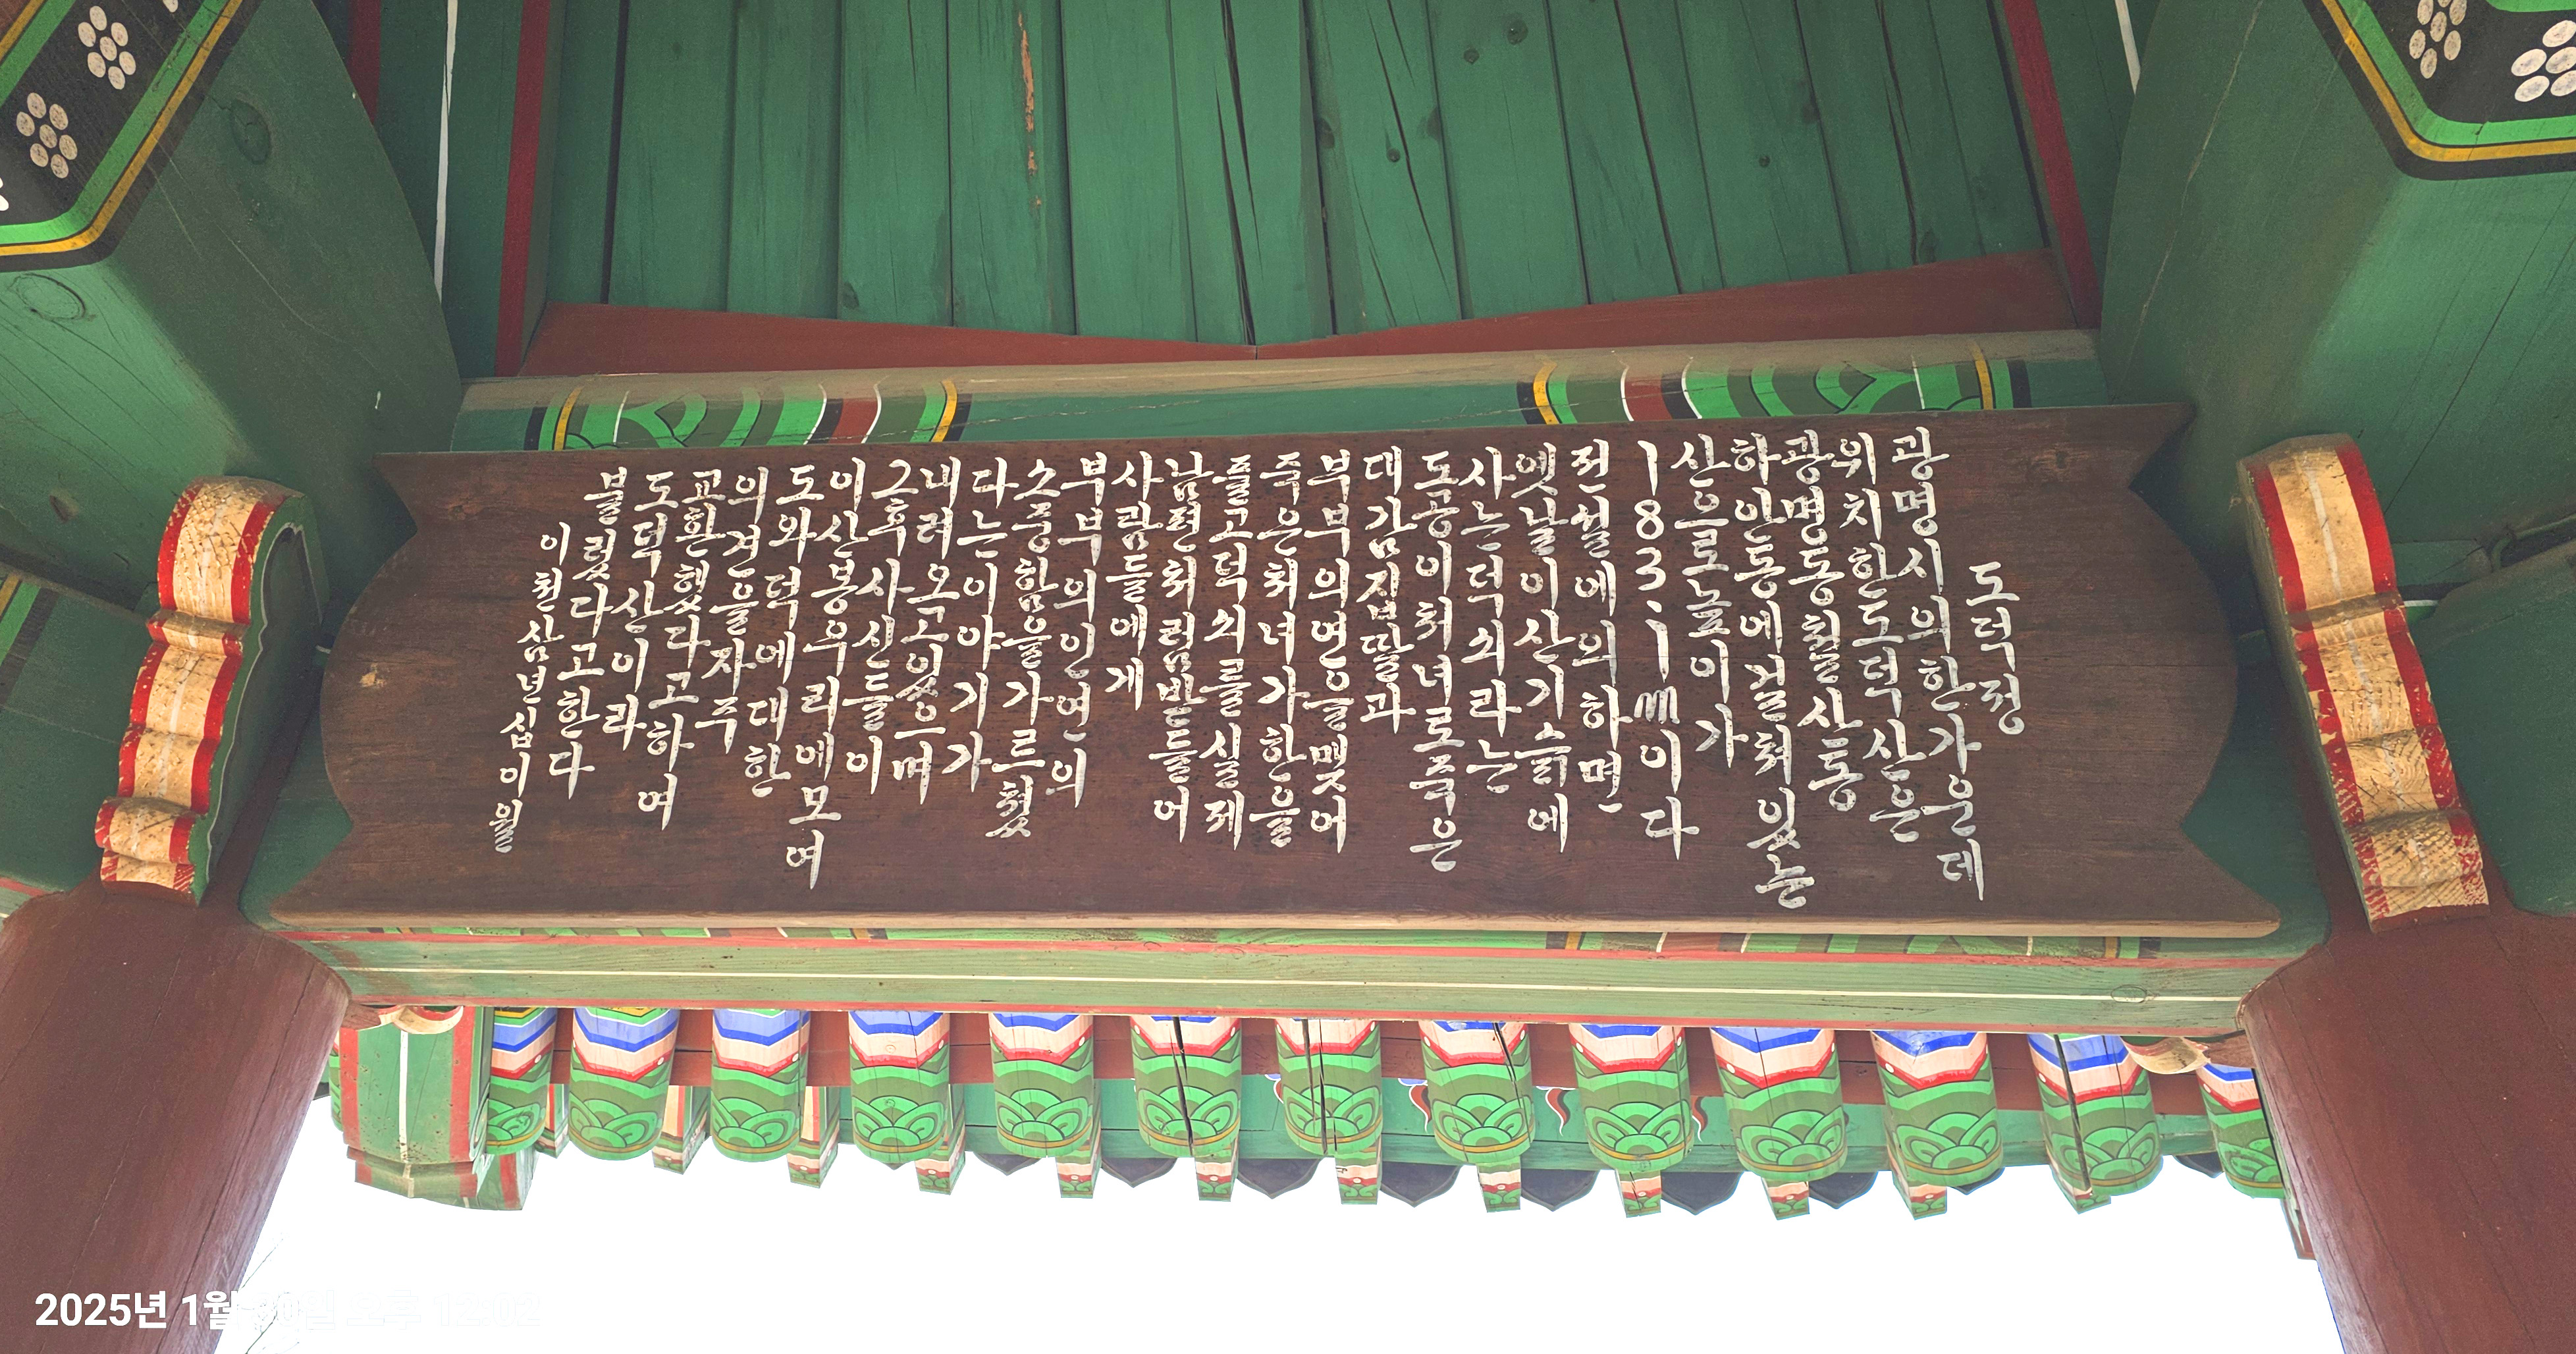 도덕정
광명시의한가운데
위치한도덕산은
광명동철산동
하안동에걸쳐있는
산으로높이가
183.1m이다
전설에의하면
옛날이산기슭에
사는덕쇠라는
도공이처녀로죽은
대감집딸과
부부의연을맺어
죽은처녀가한을
풀고덕쇠를실제
남편처럼받들어
사람들에게
부부의인연의
소중함을가르쳤
다는이야기가
내려오고있으며
그후사신들이
이산봉우리에모여
도와덕에대한
의견을자주
교환했다고하여
도덕산이라
불렀다고한다
이천삼년십이월
2025년 1월